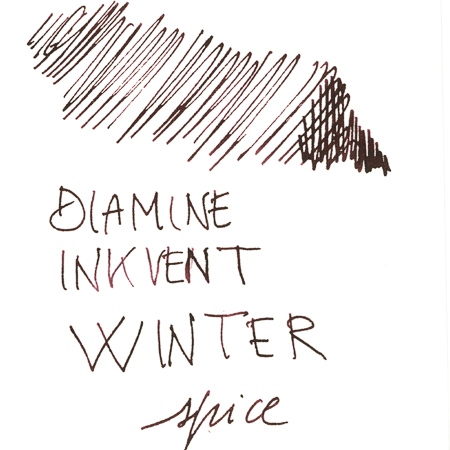 DIAMINE
INKVENT
WINTER
spice